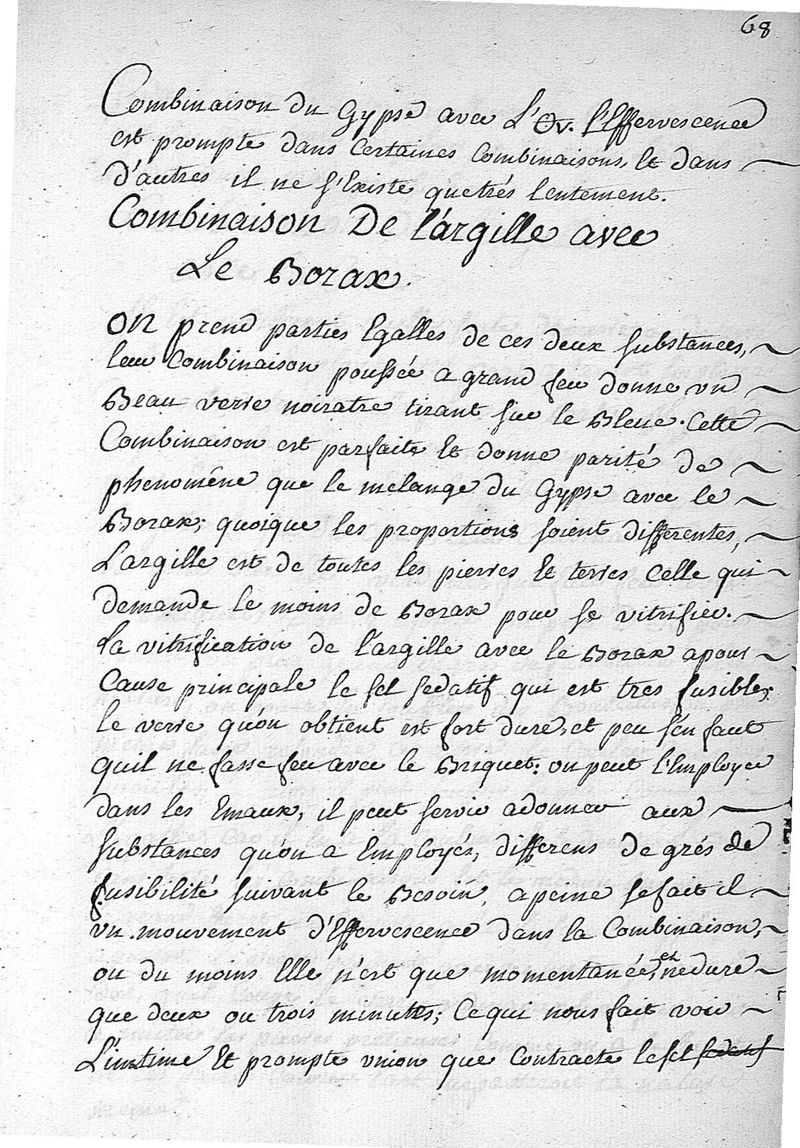 68
Combinaison du Gypse avec l'⊖v. l'Effervescence
est prompte dans certaines combinaisons, et dans
d'autres il ne s'Existe que trés lentement.
Combinaison De l'argille avec
Le Borax.
On prend parties Egalles de ces deux substances,
leur Combinaison poussée a grand feu donne un
Beau verre noiratre tirant sur le Bleue. Cette
Combinaison est parfaite Et donne parité de
phenomêne que le melange du Gypse avec le
Borax; quoique les proportions soient differentes,
L'argille est de toutes les pierres Et terres celle qui
demande le moins de Borax pour se vitrifier.
la vitrification de l'argille avec le Borax a pour
Cause principale le sel sedatif qui est tres fusible;
le verre qu'on obtient est fort dure, et peu s'en faut
quil ne fasse feu avec le Briquet: on peut l'Employer
dans les Emaux, il peut servir adonner aux
substances qu'on a Employés, differens degrés de
fusibilité suivant le Besoin, apeine se fait il
un mouvement d'Effervescence dans la Combinaison,
ou du moins Elle n'est que momentanée, et ne dure
que deux ou trois minutes; Ce qui nous fait voir
L'intime Et prompte union que Contracte le sel sedatif